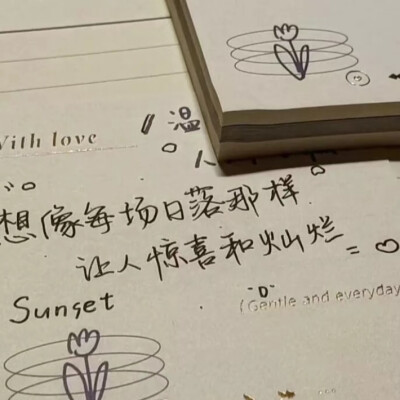 With love
温
想像每场日落那样
让人惊喜和灿烂
Sunset
(Gentle and everyday